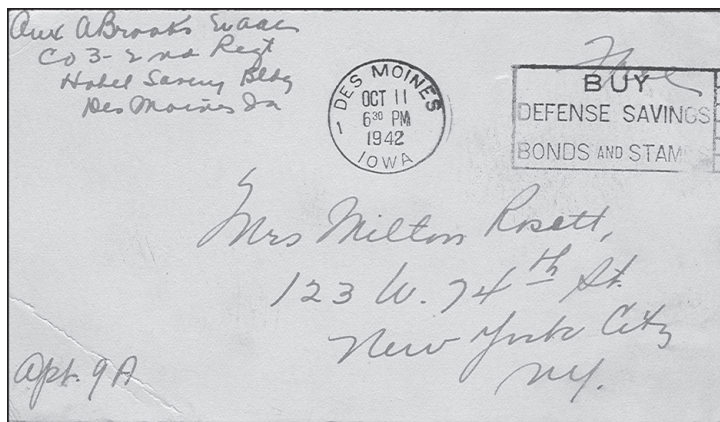 Aux A Brooks WAAC
Co 3 - 2nd Regt
Hotel Savery Bldg
Des Moines Ia
DES MOINES
OCT 11
6 30 PM
1942
IOWA
Free
BUY
DEFENSE SAVINGS
BONDS AND STAMPS
Mrs Milton Rosett,
123 W. 74th St.
New York City
NY.
Apt. 9A